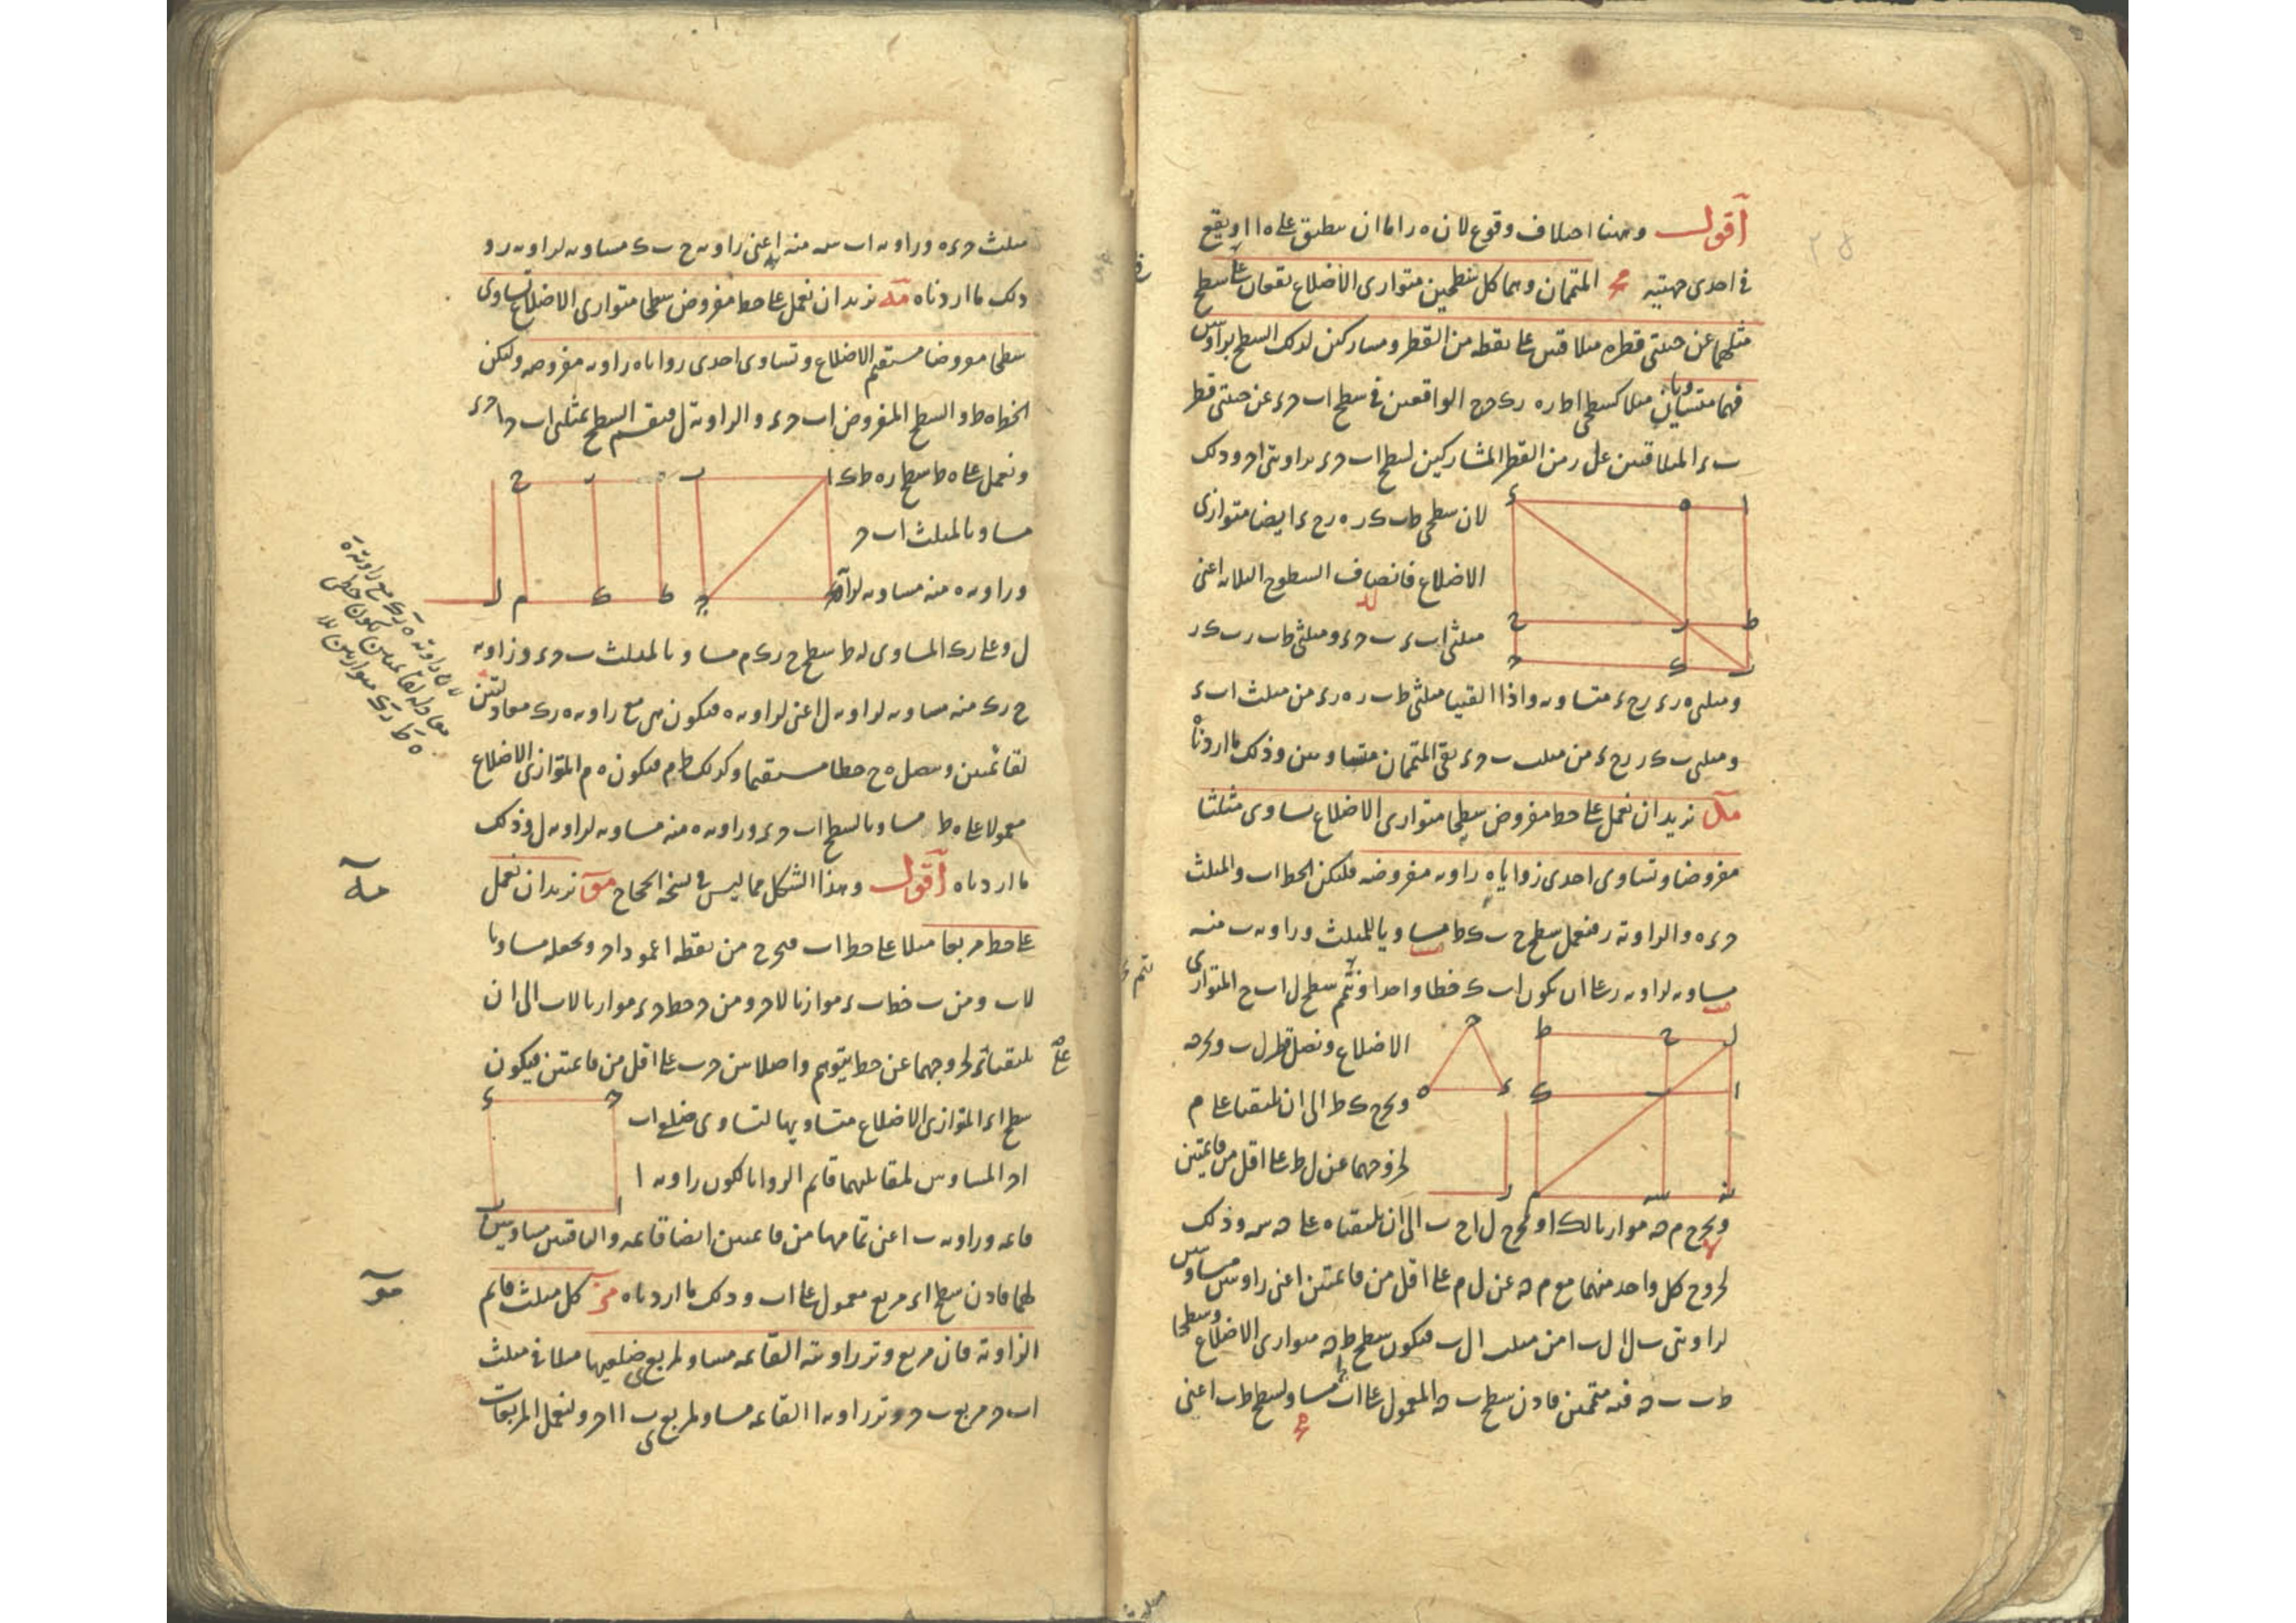 أقول وههنا اختلاف وقوع لان ه ر اما ان ينطبق على ه ا او يقع
فى احدى جهتيه مج المتممان وهما كل سطحين متوازى الأضلاع يقعان على سطح
مثلهما عن جنبتى قطره متلاقيين على نقطه من القطر ومشاركين لذلك السطح بزاويتين
فهما متساويان مثلا كسطحى ا ط ر ه ر ك ح ح الواقعين فى سطح ا ب ح ء عن جنبتى قطر
ب ء المتلاقيين على ر من القطر المشاركين لسطح ا ب ح ء بزاويتى ا ح وذلك
لان سطحى ط ب ك ر ه ر ح ء ايضا متوازى
الاضلاع فانصاف السطوح الثلاثه اعنى
مثلثى ا ب ء ب ح ء ومثلثى ط ب ر ب ك ر
ومثلثى ه ر ء ر ح ء متساويه واذا القينا مثلثى ط ب ر ه ر ء من مثلث ا ب ء
ومثلثى ب ك ر ر ح ء من مثلث ب ح ء بقى المتممان متساويين وذلك ما اردناه
مد نريد ان نعمل على خط مفروض سطحا متوازى الاضلاع يساوى مثلثا
مفروضا وتساوى احدى زواياه زاويه مفروضه فليكن الخط ا ب والمثلث
ح ء ه والزاوية ر فنعمل سطح ح ب ك ط مساويا للمثلث وزاويه ب منه
مساويه لزاويه ر على ان يكون ا ب ك خطا واحدا ونتمم سطح ل ا ب ح المتوازى
الاضلاع ونصل قطر ل ب ونخرجه
ونخرج ك ط الى ان يلتقيا على م
لخروجهما عن ل ط على اقل من قائمتين
ونخرج م ن موازيا لك ا ونخرج ل ا ح ب الى ان يلقياه على ن س وذلك
لخروج كل واحد منهما مع م ن عن ل م على اقل من قائمتين اعنى زاويتين مساويتين
لزاويتى ب ل ا ل ب ا من مثلث ا ل ب فيكون سطح ط ن متوازى الاضلاع وسطحا
ط ب ب ن فيه متممين فاذن سطح ب ن المعمول على ا ب مساو لسطح ط ب اعنى
مثلث ح ء ه وزاويه ا ب س منه اعنى زاويه ح ب ك مساويه لزاويه ر و
ذلك ما اردناه مه نريد ان نعمل على خط مفروض سطحا متوازى الاضلاع تساوى
سطحا مفروضا مستقيم الاضلاع وتساوى احدى زواياه زاويه مفروضه وليكن
الخط ه ط والسطح المفروض ا ب ح ء والزاوية ل فنقسم السطح بمثلثى ا ب ح ا ح ء
ونعمل على ه ط سطح ر ه ط ك
مساويا لمثلث ا ب ح
وزاويه ه منه مساويه لزاوية
ل وعلى ر ك المساوى لـ ه ط سطح ح ر ك م مساويا لمثلث ب ح ء وزاويه
ح ر ك منه مساويه لزاويه ل اعنى لزاويه ه فيكون هى مع زاويه ه ر ك معادلتين
لقائمتين ويتصل ه ح خطا مستقيما وكذلك ط م فيكون ه م المتوازى الاضلاع
معمولا على ه ط مساويا لسطح ا ب ح ء وزاويه ه منه مساويه لزاويه ل وذلك
ما اردناه أقول وهذا الشكل مما ليس فى نسخه الحجاج مو نريد ان نعمل
على خط مربعا مثلا على خط ا ب فنخرج من نقطه ا عمود ا ح ونجعله مساويا
لاب ومن ب خط ب ء موازيا لاح ومن ح خط ح ء موازيا لاب الى ان
يلتقيا على ء لخروجهما عن خط يتوهم واصلا بين ح ب على اقل من قائمتين فيكون
سطح ا ء المتوازى الاضلاع متساويها لتساوى ضلعى ا ب
ا ح المساويين لمقابلهما قائم الزوايا لكون زاويه ا
قائمه وزاويه ب اعنى تمامها من قائمتين ايضا قائمه والباقيتين مساويتين
لهما فاذن سطح ا ء مربع معمول على ا ب وذلك ما اردناه مز كل مثلث قائم
الزاوية فان مربع وتر زاويته القائمه مساو لمربعى ضلعيها مثلا فى مثلث
ا ب ح مربع ب ح وتر زاويه ا القائمه مساو لمربعى ب ا ا ح ولنعمل المربعات
مه
مو